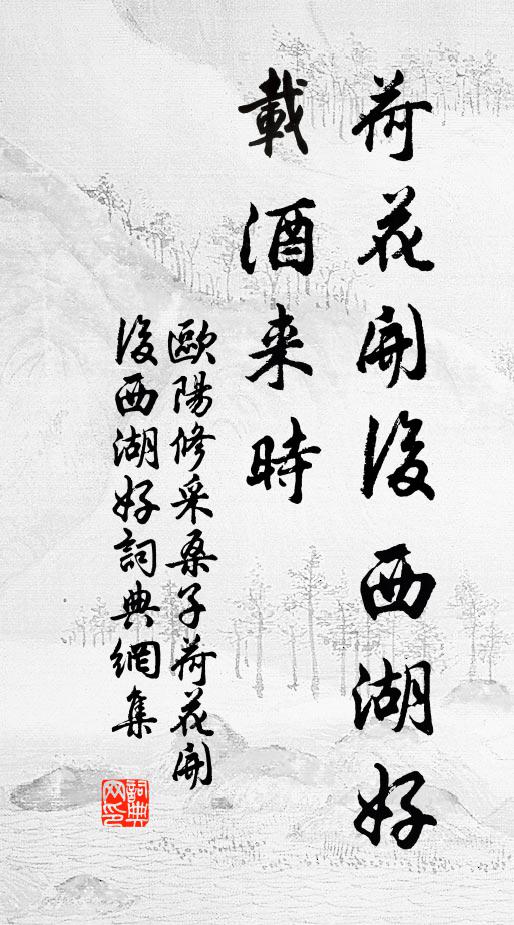 荷花開後西湖好
載酒来時
歐陽修采桑子荷花開
後西湖好詞典網集
詞典網印